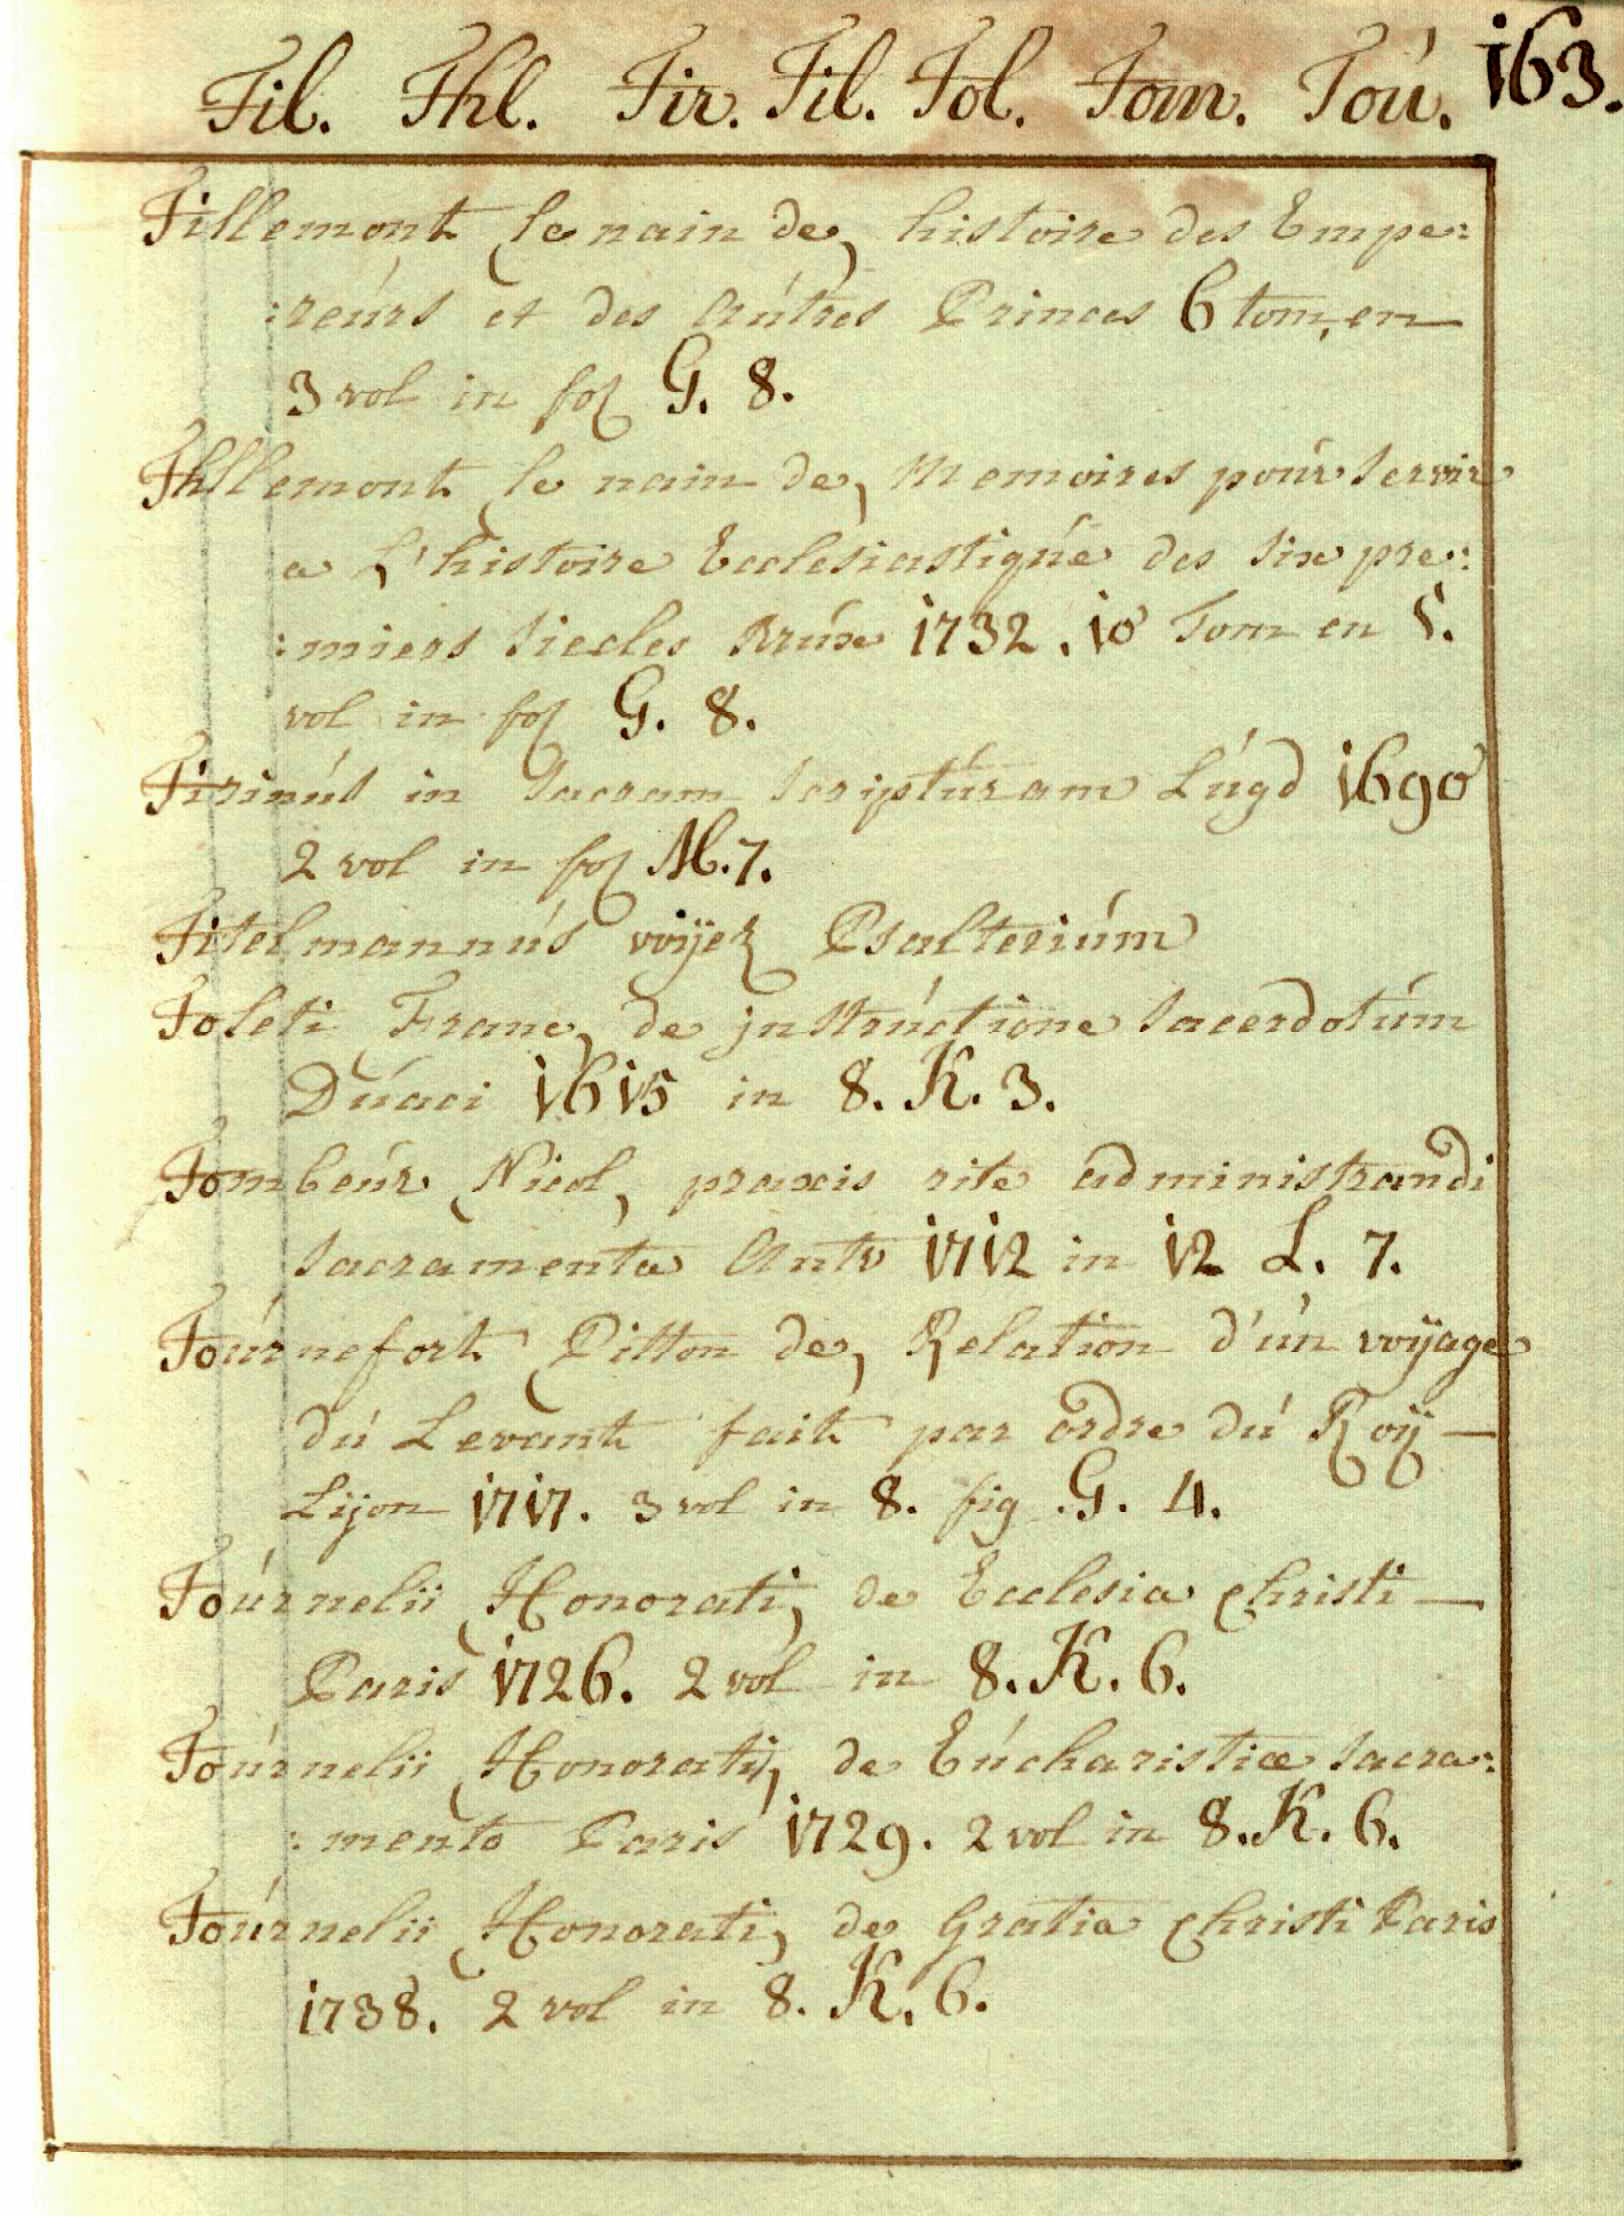 Til. Thl. Tir. Til. Tol. Tom. Toú. 163.
Tillemont (le nain de) histoire des Empe:
:reúrs et des Aútres Princes 6 tom, en
3 vol in fol G. 8.
Thllemont (le nain de) Memoires poúr servir
a L'histoire Ecclesiastiqúe des six pre:
:miers siecles Brúx 1732. 10 Tom en 5.
vol in fol G. 8.
Tirinús in Sacram scriptúram Lúgd 1690
2 vol in fol M. 7.
Titelmannús voÿez Psalteriúm
Toleti (Franc) de jnstrúctione sacerdotúm
Dúaci 1615 in 8. K. 3.
Tombeúr (Nicol) praxis rite administrandi
sacramenta Antv 1712 in 12 L. 7.
Toúrnefort (Pitton de) Relation d'ún voÿage
dú Levant fait par ordre dú Roÿ —
Lÿon 1717. 3 vol in 8. fig. G. 4.
Toúrnelii (Honorati) de Ecclesia Christi —
Paris 1726. 2 vol in 8. K. 6.
Toúrnelii (Honorati) de Eúcharistiæ sacra:
:mento Paris 1729. 2 vol in 8. K. 6.
Toúrnelii (Honorati) de Gratia Christi Paris
1738. 2 vol in 8. K. 6.